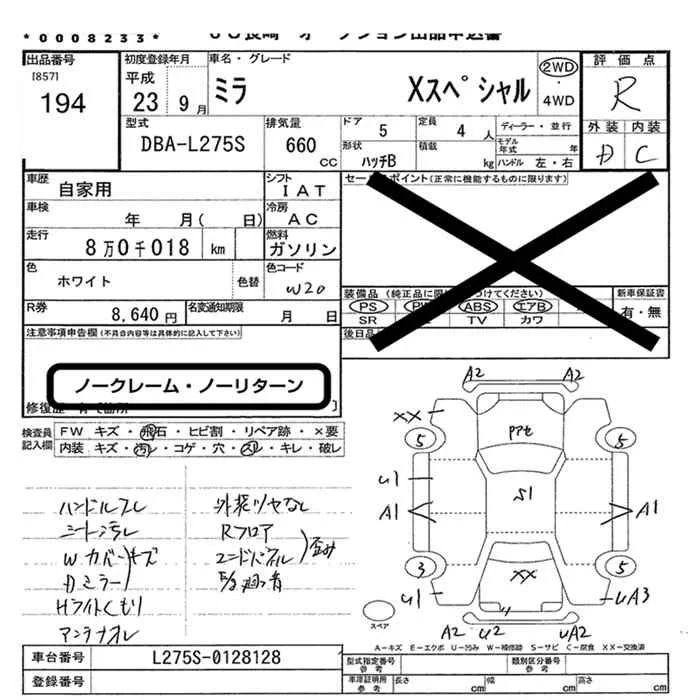 *0008233*
出品番号
[857]
194
初度登録年月
平成
23 9月
車名・グレード
ミラ Xスペシャル
2WD
・
4WD
評価点
R
外装 内装
D C
型式
DBA-L275S
排気量
660
cc
ドア
5
定員
4人
ディーラー・並行
形状
ハッチB
積載
kg
モデル年式 年
ハンドル 左・右
車歴
自家用
シフト
IAT
車検
年 月( 日)
冷房
AC
走行
8万0千018 km
燃料
ガソリン
色
ホワイト
色替
色コード
W20
R券
8,640円
名変通知期限
月 日
(正常に機能するものに限ります)
装備品
PS
ABS
エアB
SR
TV
カワ
新車保証書
有・無
後日
注意事項申告欄(不具合内容等は具体的に記入して下さい)
ノークレーム・ノーリターン
検査員
記入欄
FW キズ・飛石・ヒビ割・リペア跡・×要
内装 キズ・汚レ・コゲ・穴・スレ・キレ・破レ
ハンドルスレ
シート汚レ
Wカバー
Dミラー
キズ
Hライトくもり
アンテナオレ
外装ツヤなし
Rフロア
エンドパネル
歪み
A2 A2
XX
5 5
PPセ
U1
S1
A1 A1
3 5
XX
U1 UA3
A2 U2 UA2
スペア
A-キズ E-エクボ U-凹み W-補修跡 S-サビ C-腐食 XX-交換済
車台番号
L275S-0128128
登録番号
型式指定番号
参考
類別区分番号
参考
車庫証明用
参考
長さ cm
幅 cm
高さ cm